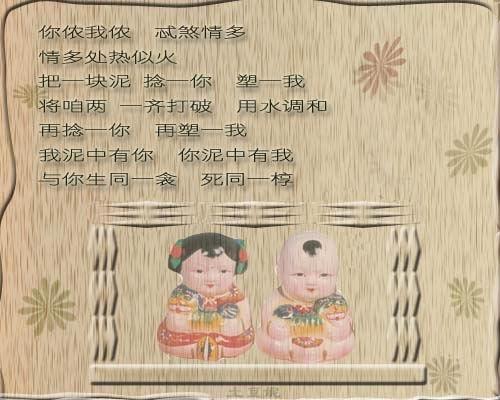 你侬我侬　忒煞情多
情多处热似火
把一块泥 捻一你　塑一我
将咱两 一齐打破　用水调和
再捻一你　再塑一我
我泥中有你　你泥中有我
与你生同一衾　死同一椁